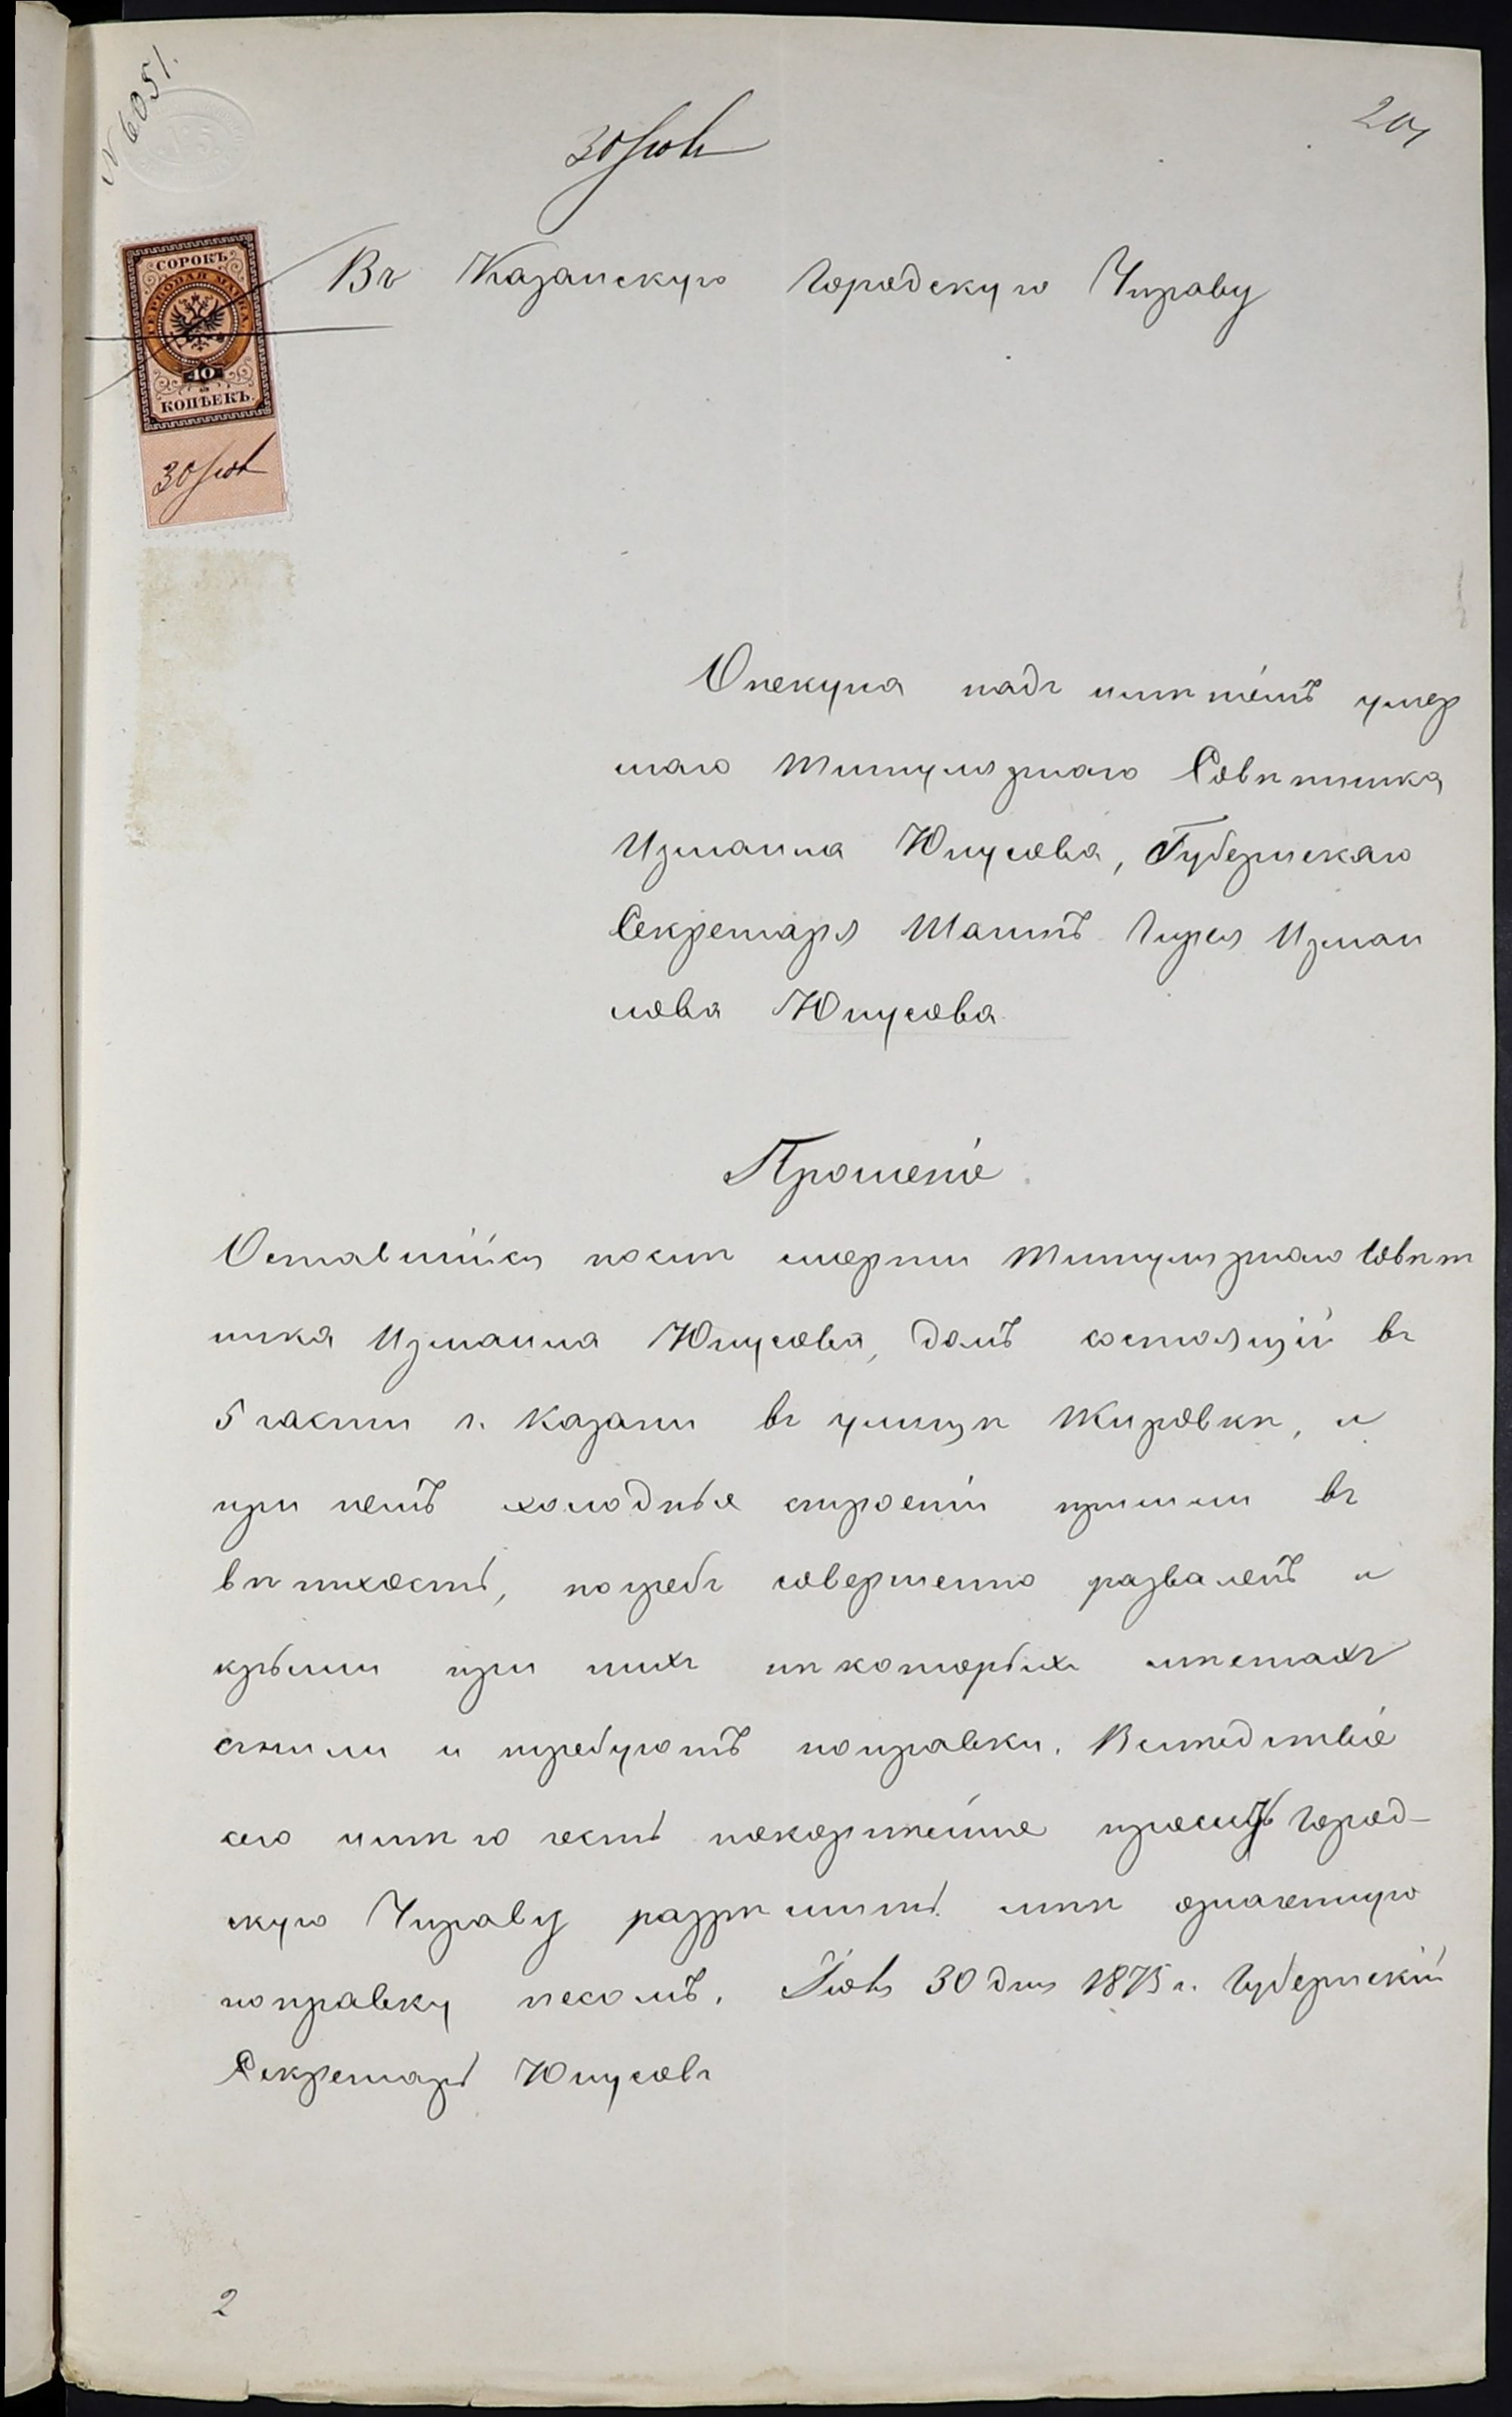 N 6051.
204
30 Іюн
Въ Казанскую Городскую Управу
СОРОКЪ
ГЕРБОВАЯ МАРКА
40
КОПѢЕКЪ.
30 Іюн
Опекуна надъ имѣнiемъ умер
шаго Титулярнаго Совѣтника
Измаила Юнусова, Губернскаго
Секретаря Шагинъ Гирея Измаи
лова Юнусова
Прошенiе
Оставшiйся послѣ смерти Титулярнаго Совѣт
ника Измаила Юнусова, домъ состоящiй въ
5 части г. Казани въ улицѣ Жировкѣ, и
при немъ холодныя строенiи пришли въ
вѣтхость, погребъ совершенно разваленъ и
крыши при нихъ нѣкоторыхъ мѣстахъ
сгнили и требуютъ поправки. Вслѣдствiе
сего имѣю честь покорнѣйше просить Город-
скую Управу разрѣшить мнѣ означенную
поправку лесомъ. Iюня 30 дня 1875 г. Губернскiй
Секретарь Юнусовъ
2